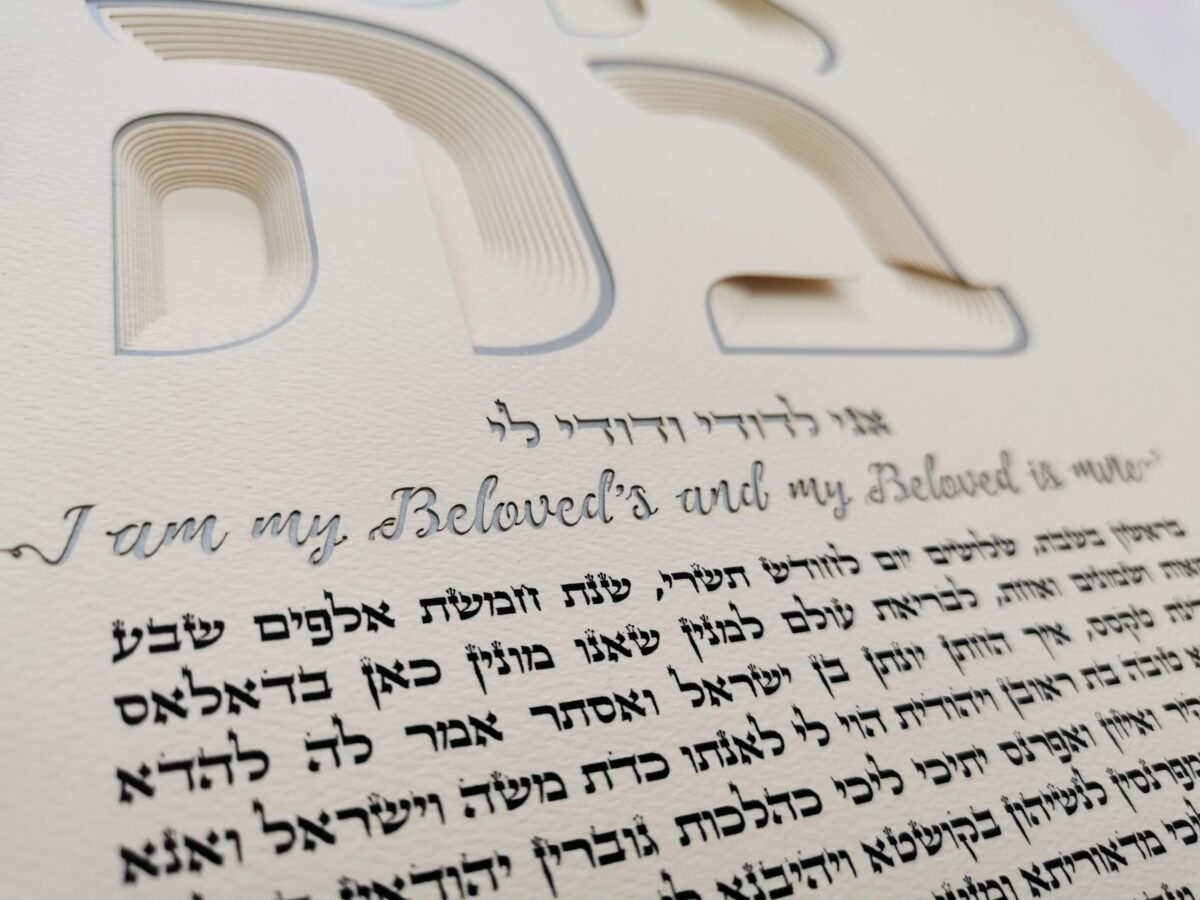 בה
אני לדודי ודודי לי
I am my Beloved's and my Beloved is mine
בראשון בשבת, שלושים יום לחודש תשרי, שנת חמשת אלפים שבע
ושמונים ואחת, לבריאת עולם למנין שאנו מונין כאן בדאלאס
טקסס, איך החתן יונתן בן ישראל ואסתר אמר לה להדא
טובה בת ראובן ויהודית הוי לי לאנתו כדת משה וישראל ואנא
ואיזון ואפרנס יתיכי ליכי כהלכות גוברין יהודאין
לנשיהון בקושטא ויהיבנא
מדאוריתא